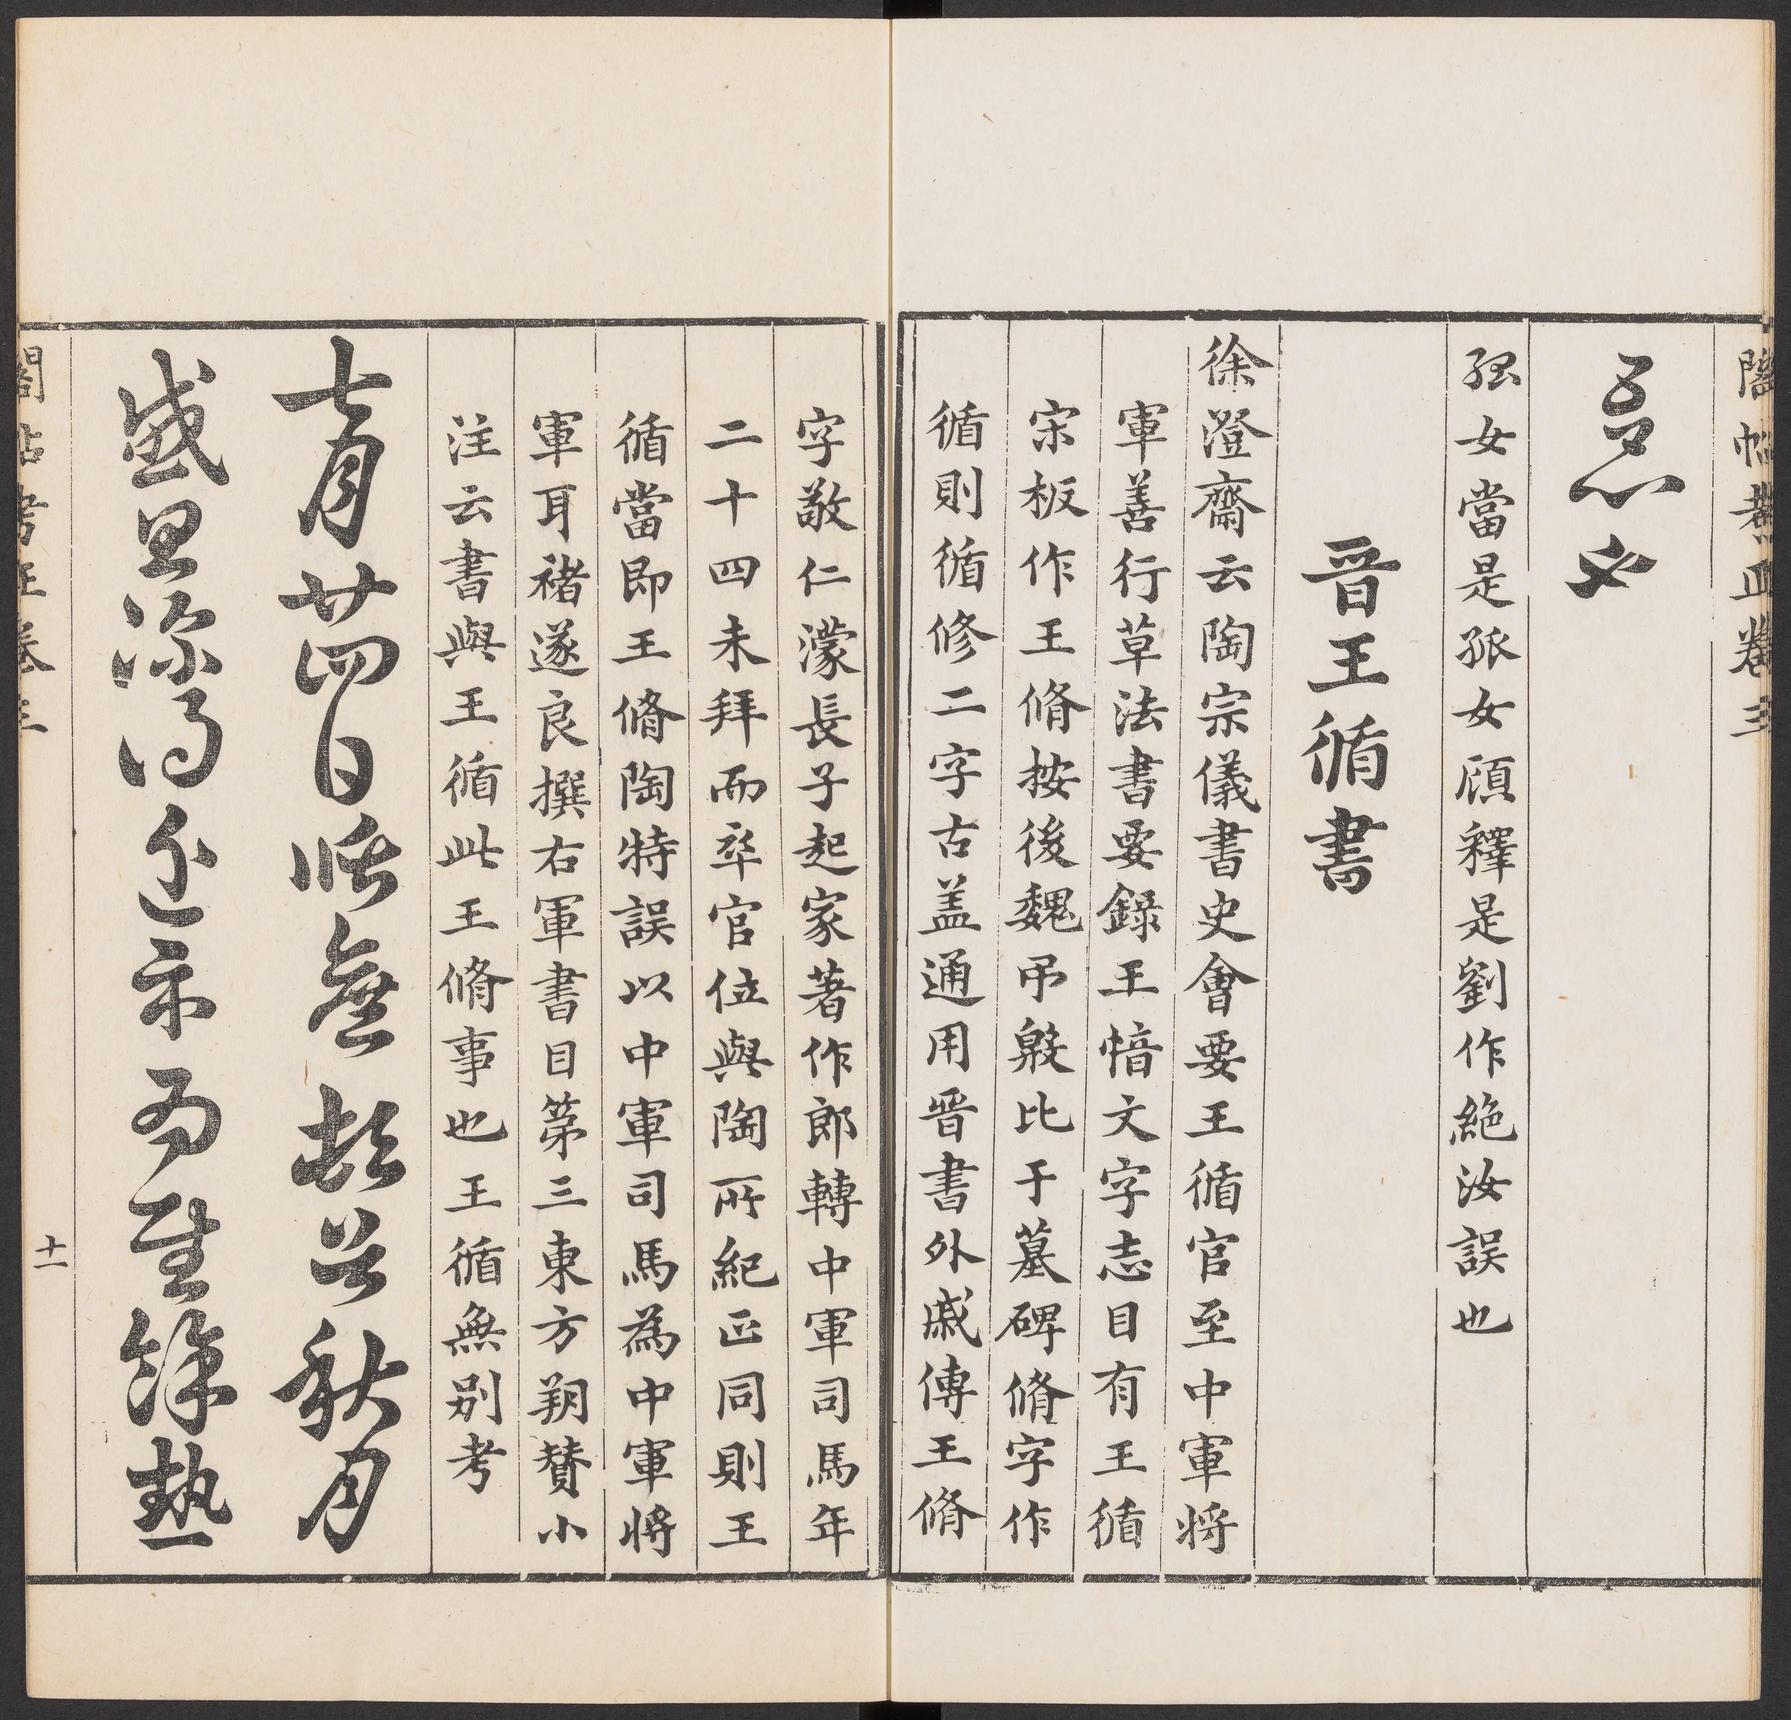 閣帖考正卷三
孤女當是孤女顧釋是劉作絶汝誤也
晉王循書
徐澄齋云陶宗儀書史會要王循官至中軍將
軍善行草法書要錄王愔文字志目有王循
宋板作王脩按後魏弔殷比干墓碑脩字作
循則循修二字古盖通用晉書外戚傳王脩
字敬仁濛長子起家著作郎轉中軍司馬年
二十四未拜而卒官位與陶所紀正同則王
循當即王脩陶特誤以中軍司馬為中軍將
軍耳褚遂良撰右軍書目第三東方朔贊小
注云書與王循此王脩事也王循無别考
七月廿四日 無 秋月
感 餘熱
閣帖考正卷三
十一